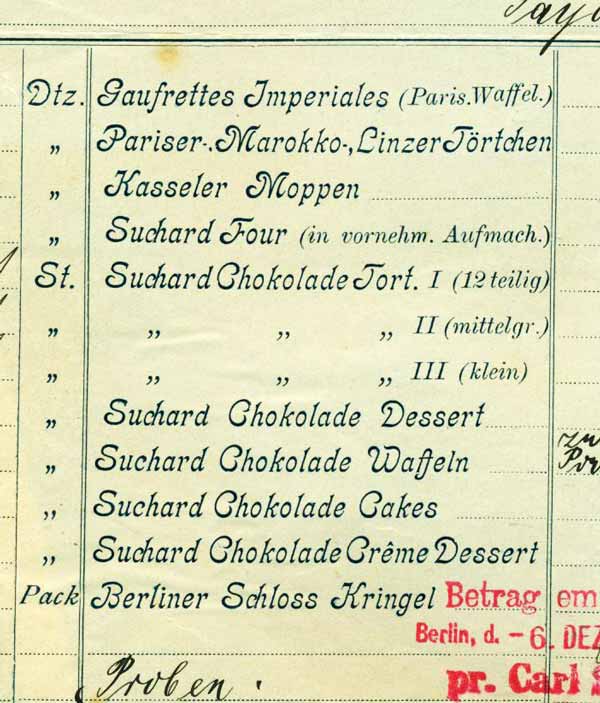 Dtz. Gaufrettes Imperiales (Paris. Waffel.)
„ Pariser-, Marokko-, Linzer Törtchen
„ Kasseler Moppen
„ Suchard Four (in vornehm. Aufmach.)
St. Suchard Chokolade Tort. I (12 teilig)
„ „ „ „ II (mittelgr.)
„ „ „ „ III (klein)
„ Suchard Chokolade Dessert
„ Suchard Chokolade Waffeln
„ Suchard Chokolade Cakes
„ Suchard Chokolade Crême Dessert
Pack Berliner Schloss Kringel
Betrag em
Berlin, d. - 6. DEZ
pr. Carl S
Proben.